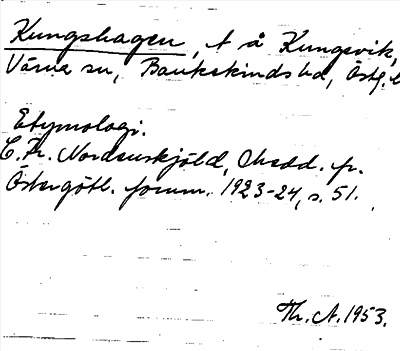 Kungshagen, t å Kungsvik,
Värna sn, Bankekinds hd, Östg. l
Etymologi.
C. Fr. Nordenskjöld, Medd. fr.
Östergötl. fornm. 1923-24, s. 51.
Th. A. 1953.